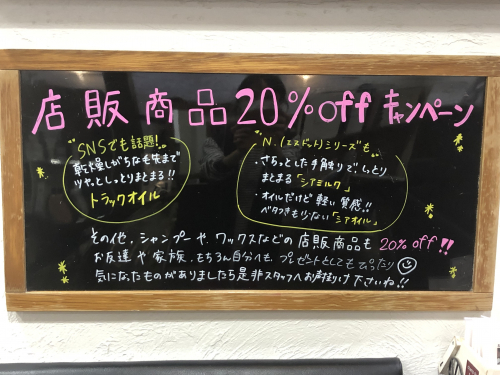 店販商品20%offキャンペーン
"SNSでも話題!"
乾燥しがちな毛先まで
ツヤっとしっとりまとまる!!
トラックオイル
"N.(エヌドット)シリーズも"
・さらっとした手触りで、しっとり
まとまる「シアミルク」
・オイルだけど軽い質感!!
ベタつきも少ない「シアオイル」
その他、シャンプーや、ワックスなどの店販商品も 20% off!!
お友達や家族、もちろん自分へも、プレゼントとしてもぴったり
気になったものがありましたら是非スタッフへお声掛け下さいね!!